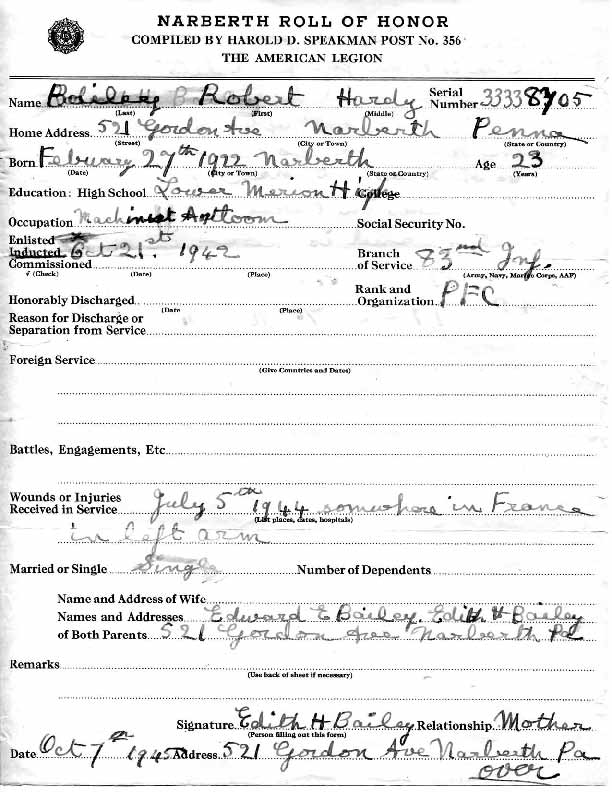 NARBERTH ROLL OF HONOR
COMPILED BY HAROLD D. SPEAKMAN POST No. 356
THE AMERICAN LEGION
Name Bailey Robert Hardy Serial Number 33338705
(Last) (First) (Middle)
Home Address 521 Gordon Ave Narberth Penna
(Street) (City or Town) (State or Country)
Born February 27th 1922 Narberth Age 23
(Date) (City or Town) (State or Country) (Years)
Education: High School Lower Merion High College
Occupation Machinist Social Security No.
Enlisted
Inducted Oct 21.st 1942 Branch
Commissioned of Service 83nd Inf.
✓ (Check) (Date) (Place) (Army, Navy, Marine Corps, AAF)
Rank and
Honorably Discharged Organization PFC
(Date (Place)
Reason for Discharge or
Separation from Service
Foreign Service
(Give Countries and Dates)
Battles, Engagements, Etc.
Wounds or Injuries
Received in Service July 5th 1944 somwhere in France
(List places, dates, hospitals)
in left arm
Married or Single Single Number of Dependents
Name and Address of Wife
Names and Addresses Edward E Bailey. Edith H Bailey
of Both Parents 521 Gordon Ave Narberth Pa
Remarks
(Use back of sheet if necessary)
Signature Edith H Bailey Relationship Mother
(Person filling out this form)
Date Oct 7th 1945 Address 521 Gordon Ave Narberth Pa
over